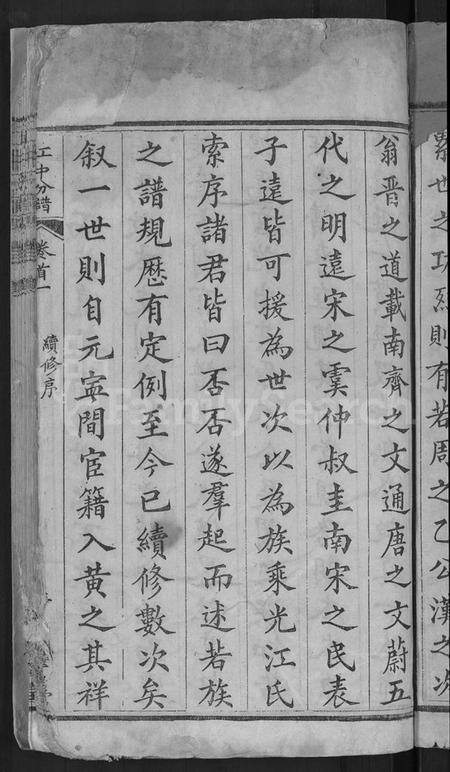 累世之功烈則有若周之乙公漢之次
翁晋之道載南齊之文通唐之文蔚五
代之明遠宋之雩仲叔圭南宋之民表
子遠皆可援為世次以為族乘光江氏
索序諸君皆曰否否遂羣起而述若族
之譜規歴有定例至今已續修數次矣
叙一世則自元寍間宦籍入黄之其祥
江中分譜
卷首一
續修序